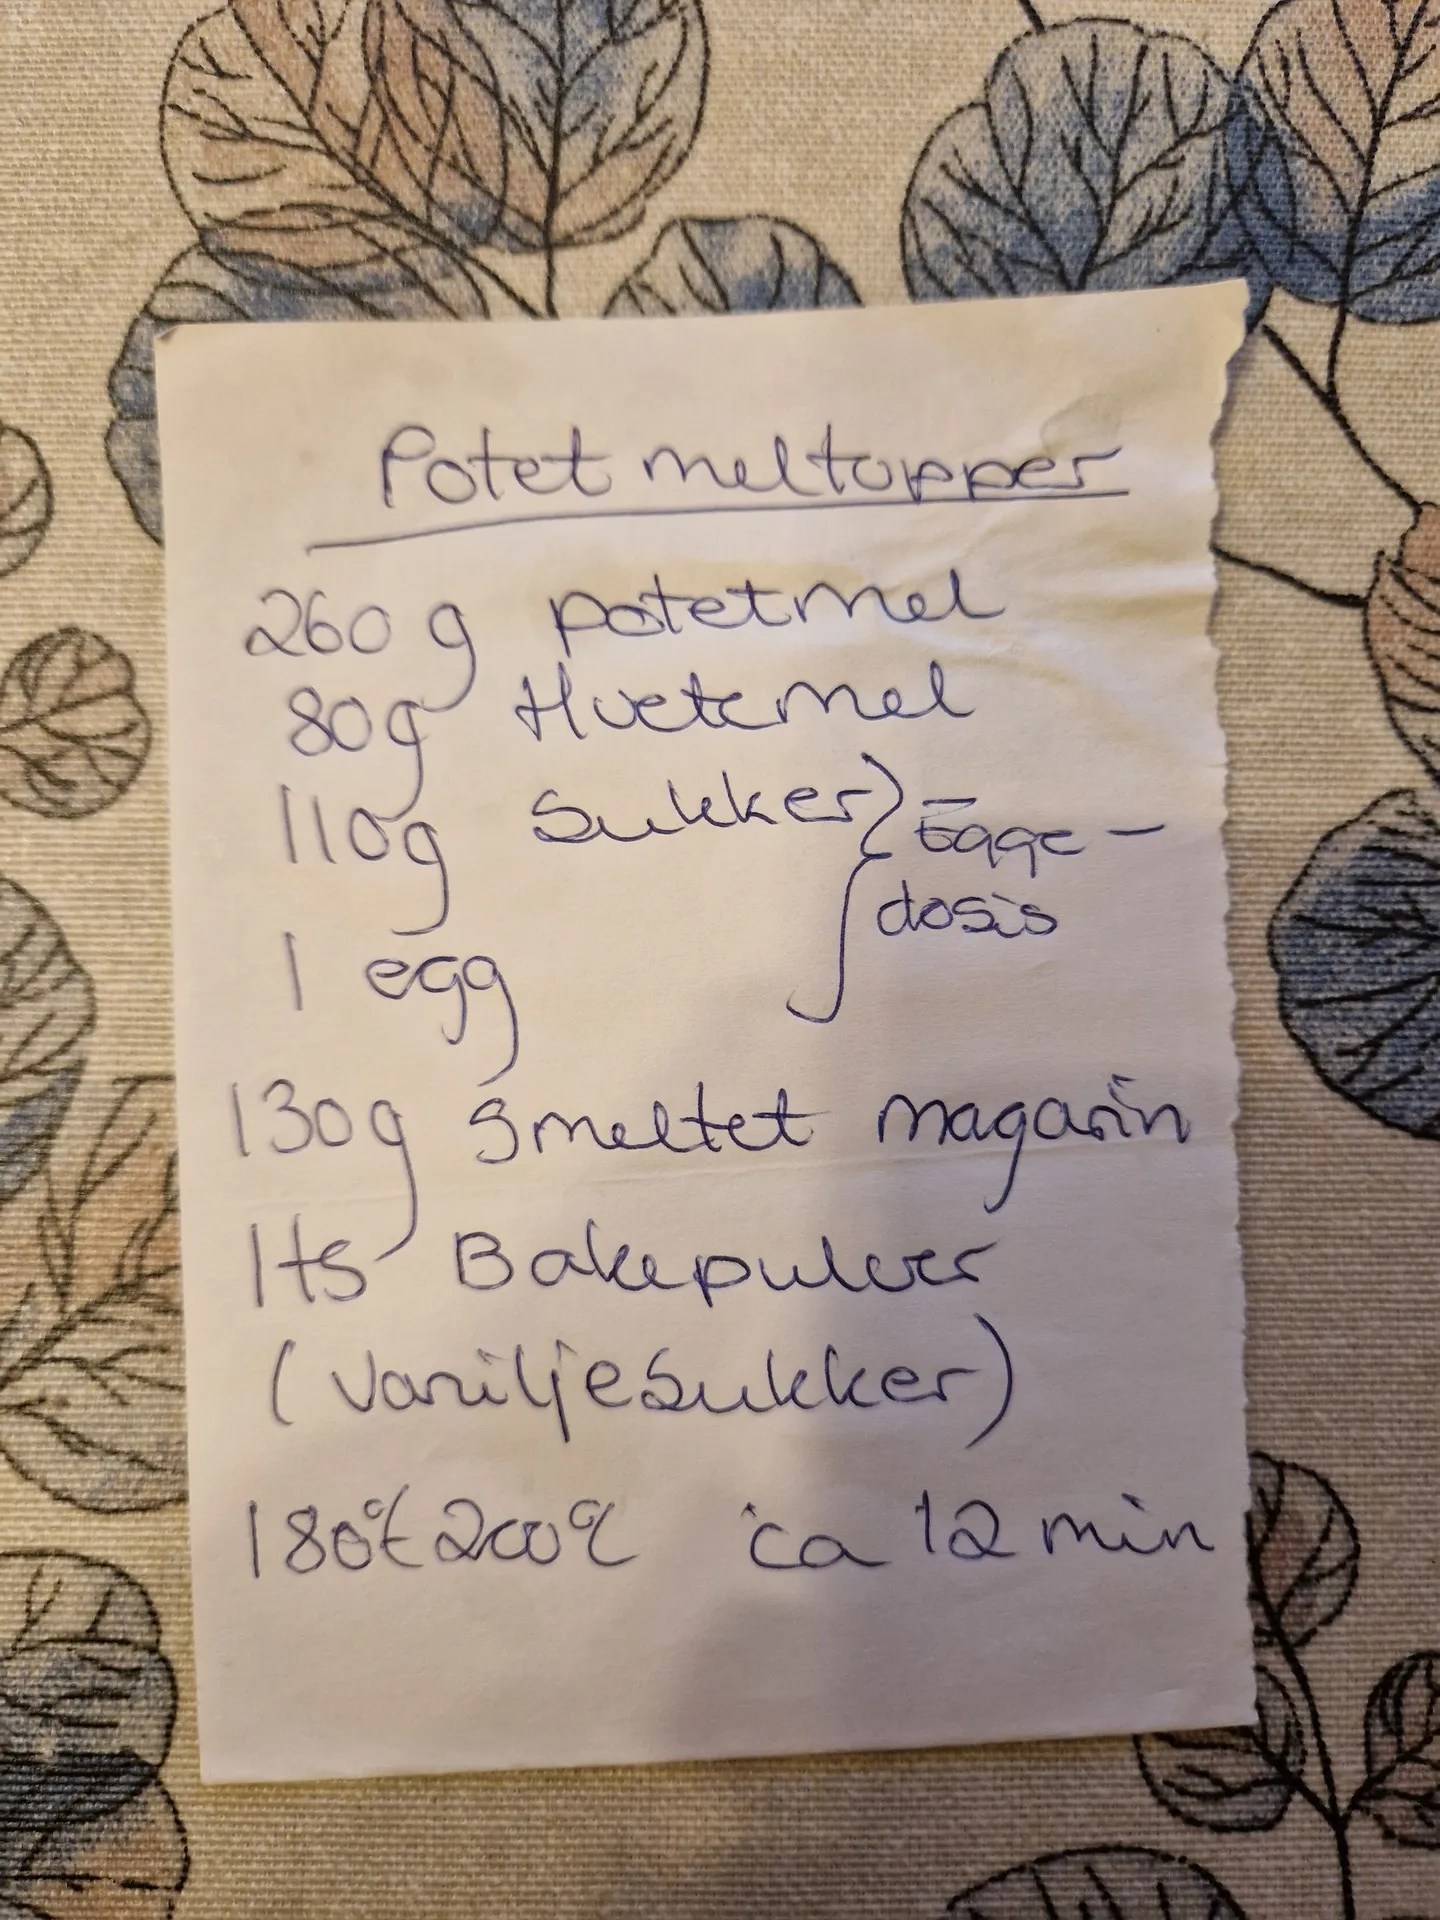 Potet meltopper
260 g potetmel
80g Hvetemel
110g Sukker } Egge-
dosis
1 egg
130g Smeltet magarin
1ts Bakepulver
(Vaniljesukker)
180°C 200°C ca 12 min